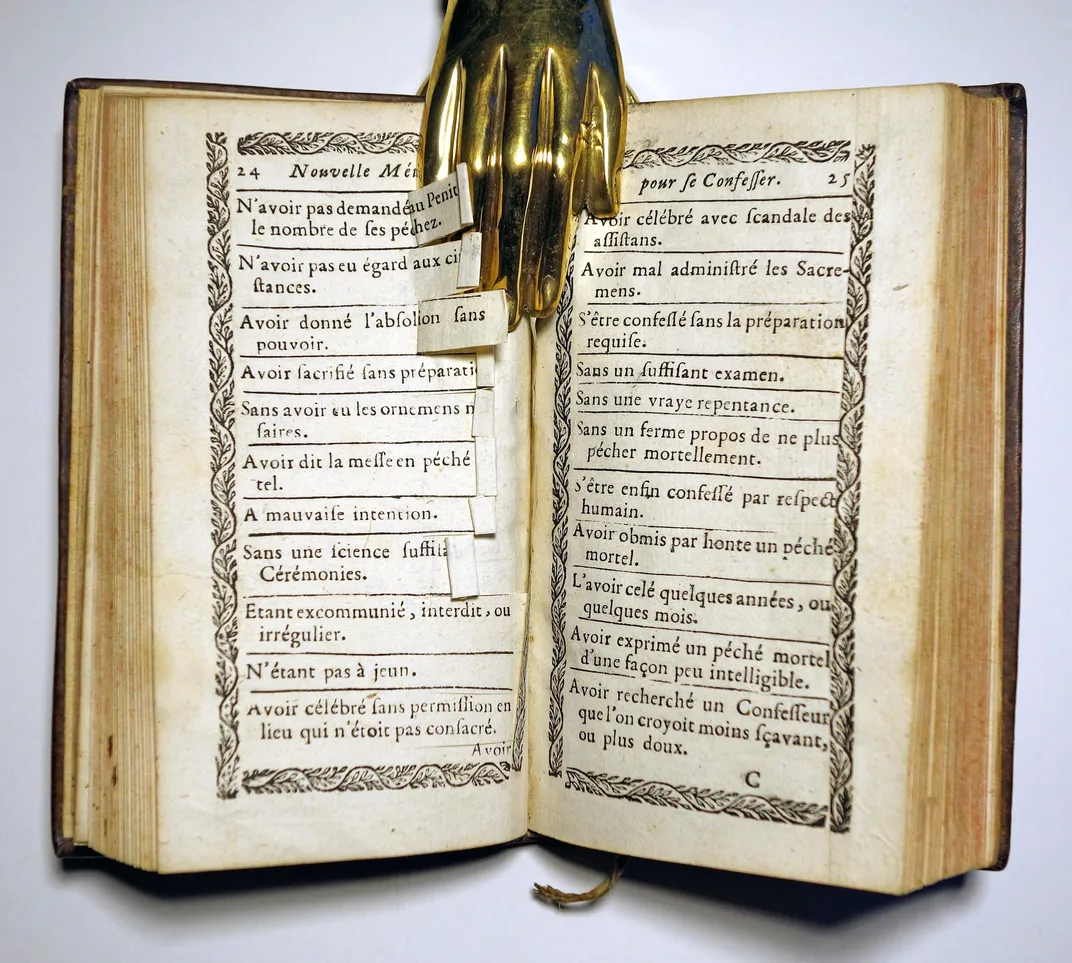 24 Nouvelle Mé
N'avoir pas demandé au Penit
le nombre de ſes péchez.
N'avoir pas eu égard aux ci
ſtances.
Avoir donné l'abſolion ſans
pouvoir.
Avoir ſacrifié ſans préparati
Sans avoir eu les ornemens n
ſaires.
Avoir dit la meſſe en péché
tel.
A mauvaiſe intention.
Sans une ſcience ſuffiſa
Cérémonies.
Etant excommunié, interdit, ou
irrégulier.
N'étant pas à jeun.
Avoir célébré ſans permiſſion en
lieu qui n'étoit pas conſacré.
Avoir
pour ſe Confeſſer. 25
Avoir célébré avec ſcandale des
aſſiſtans.
Avoir mal adminiſtré les Sacre-
mens.
S'être confeſſé ſans la préparation
requiſe.
Sans un ſuffiſant examen.
Sans une vraye repentance.
Sans un ferme propos de ne plus
pécher mortellement.
S'être enfin confeſſé par reſpect
humain.
Avoir obmis par honte un péché
mortel.
L'avoir celé quelques années, ou
quelques mois.
Avoir exprimé un péché mortel
d'une façon peu intelligible.
Avoir recherché un Confeſſeur
que l'on croyoit moins ſçavant,
ou plus doux.
C